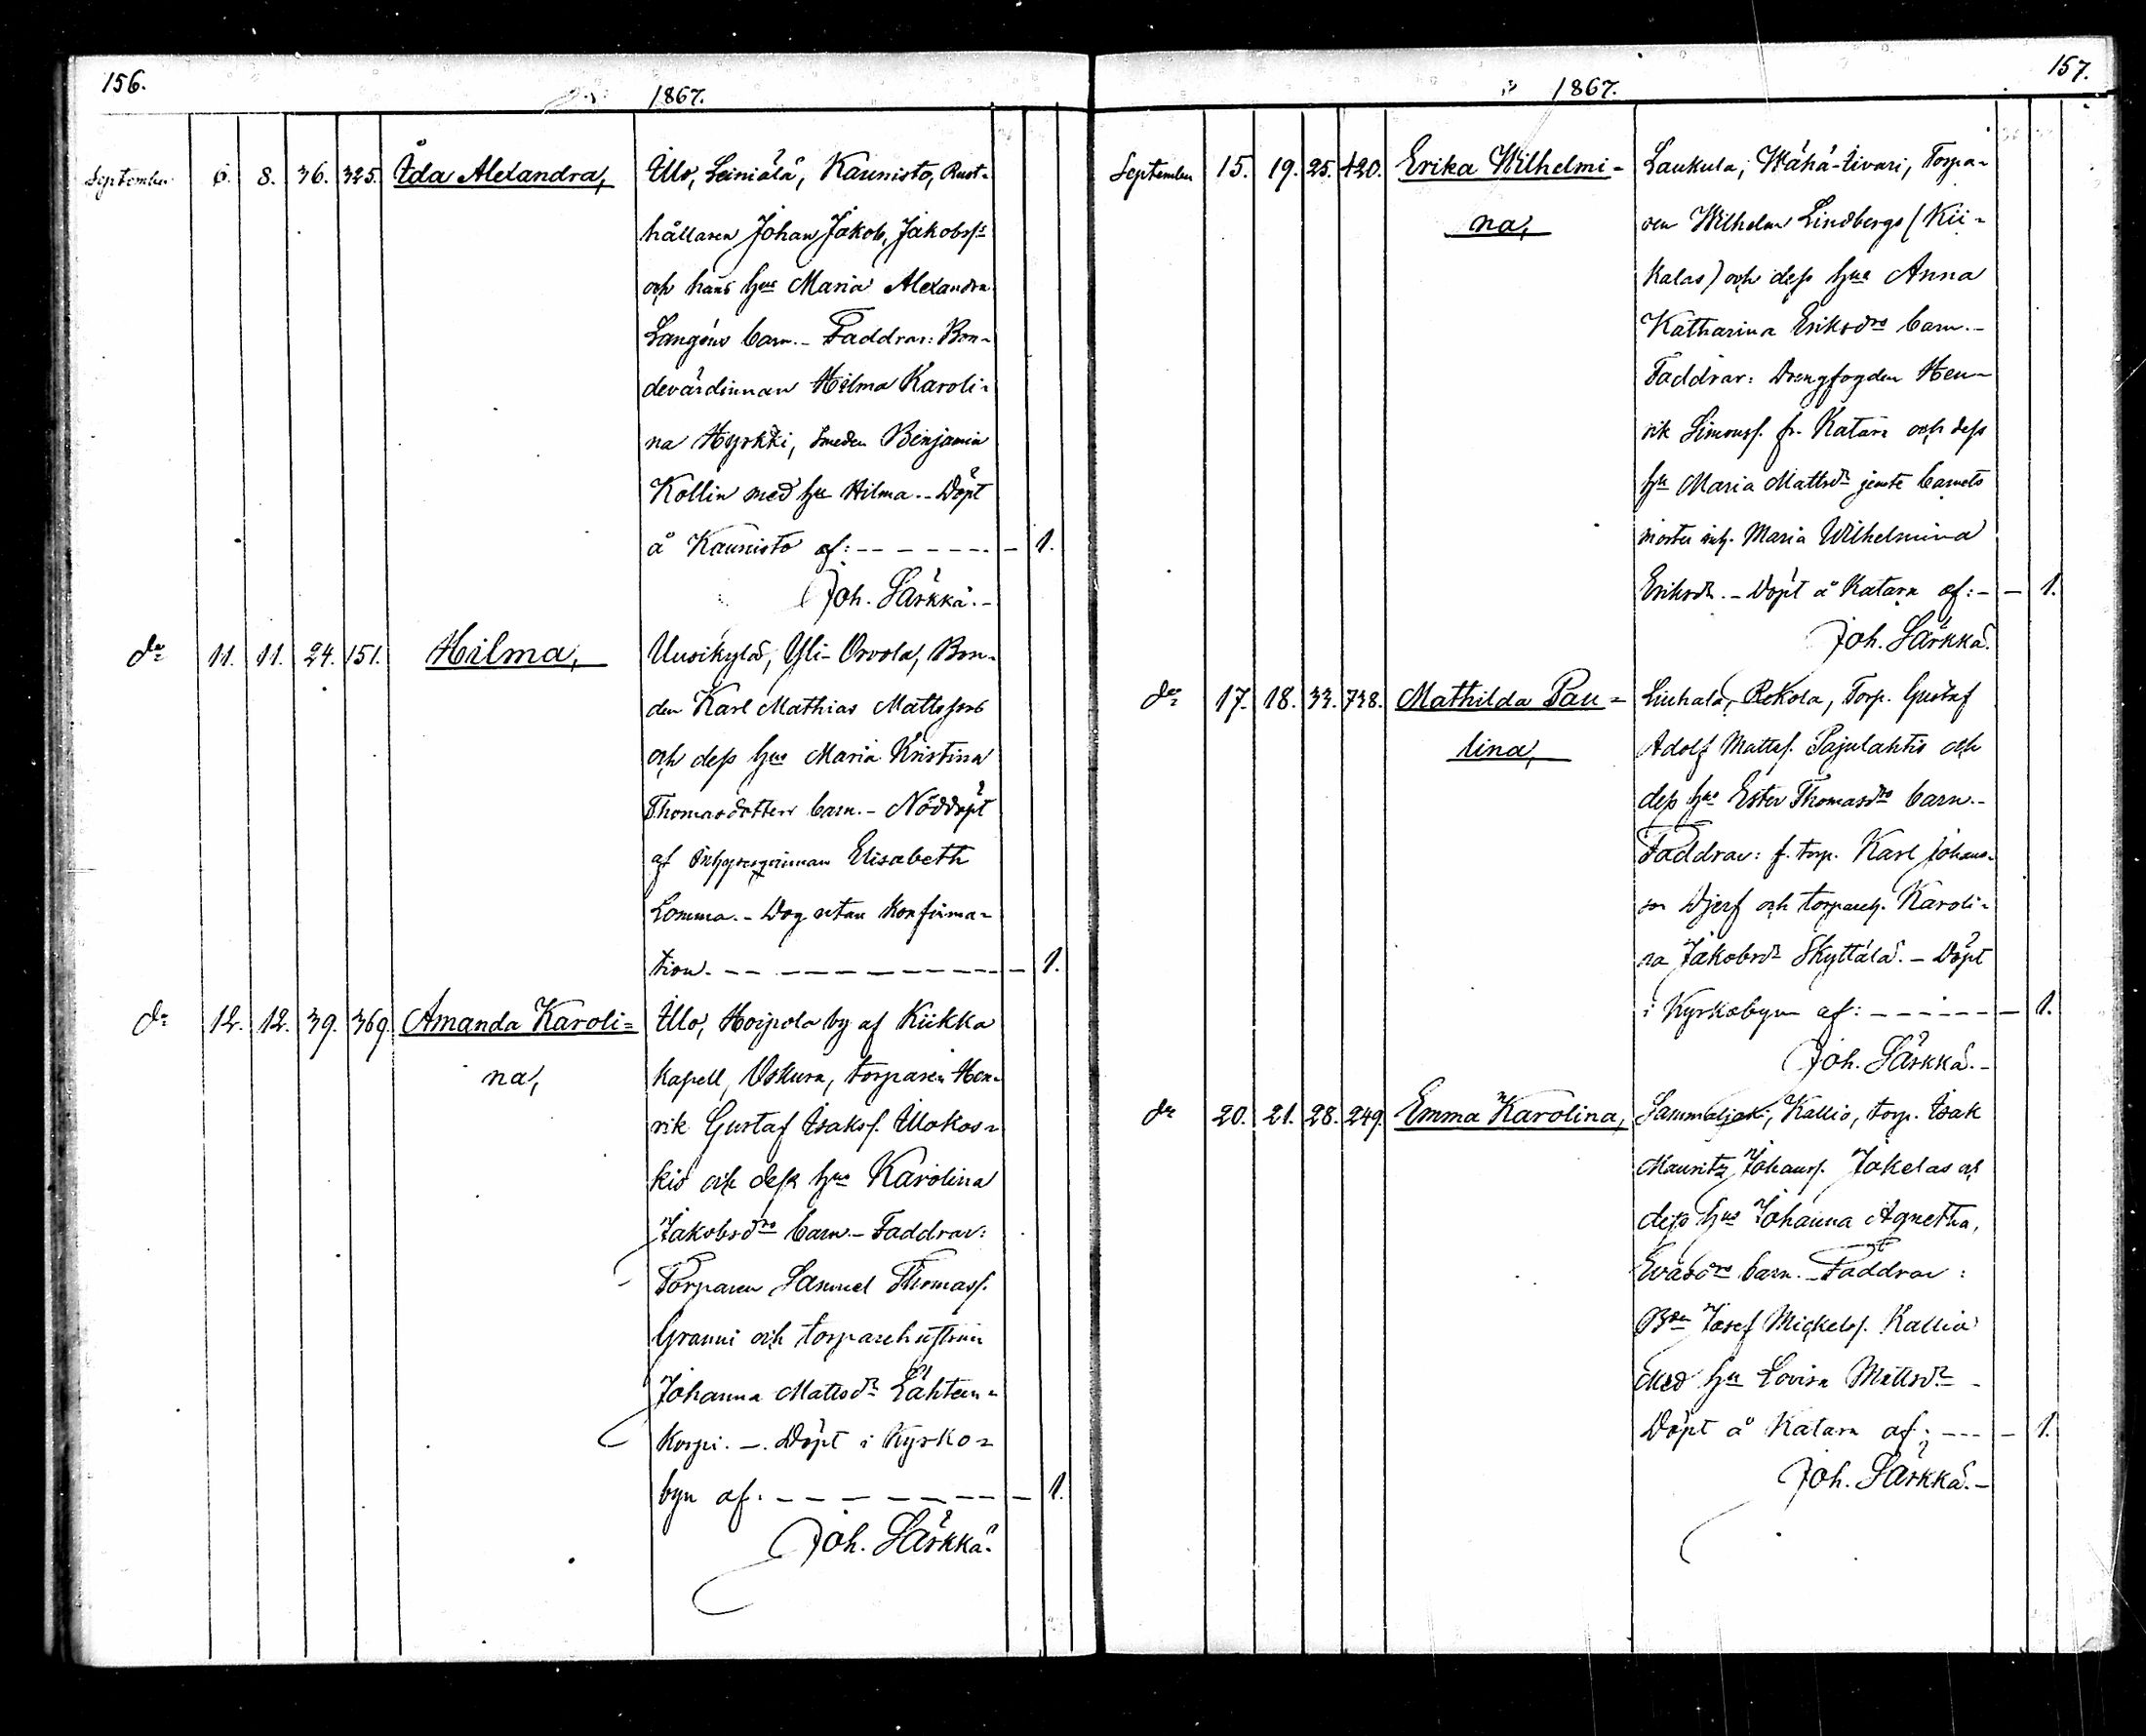 156.
1867.
September 6. 8. 36. 325. Ida Alexandra, Illo, Leiniälä, Kaunisto, Rust-
hållaren Johan Jakob, Jakobss:s
och hans hus Maria Alexandra
Langéns barn. - Faddrar: Bon-
devärdinnan Hilma Karoli-
na Hyrkki, Smeden Benjamin
Kollin med hu Hilma. - Döpt
å Kaunisto af: - - - - - - - 1.
Joh. Särkkä. -
do 11. 11. 24. 151. Hilma, Uusikylä, Yli-Orvola, Bon-
den Karl Mathias Mattssons
och dess hus Maria Kristina
Thomasdotters barn. - Nöddöpt
af Elisabeth
Lomma. - Dog utan Konfirma-
tion. - - - - - - - - - - 1.
do 12. 12. 39. 369. Amanda Karoli= Illo, Hoipola by af Kiikka
na, kapell, Uskura, torparen Hen-
rik Gustaf Isakss. Illokos-
kis och dess hus Karolina
Jakobsdrs barn. - Faddrar:
Torparen Samuel Thomass.
Granni och torparehustrun
Johanna Mattsdr Lähteen-
korpi. -. Döpt i Kyrko-
byn af. - - - - - - - - 1.
Joh. Särkkä.
157.
1867.
September 15. 19. 25. 420. Erika Wilhelmi- Laukula, Wähä-Iivari, Torpa-
na, ren Wilhelm Lindbergs (Kii-
kalas) och dess hus Anna
Katharina Eriksdrs barn. -
Faddrar: Drengfogden Hen-
rik Simonss. fr. Katara och dess
hu Maria Mattsdr jemte barnets
moster Maria Wilhelmina
Eriksdr. - Döpt å Katara af: - - 1.
Joh. Särkkä.
do 17. 18. 33. 738. Mathilda Pau- Liuhala, Rekola, Torp. Gustaf
lina, Adolf Mattss. Pajulahtis och
dess hus Ester Thomasdrs barn. -
Faddrar: f. torp. Karl Johans-
son Djerf och torpareh. Karoli-
na Jakobsdr Skyttälä. - Döpt
i Kyrkobyn af: - - - - - - 1.
Joh. Särkkä. -
do 20. 21. 28. 249. Emma Karolina, Sammaljoki, Kallio, torp. Isak
Mauritz Johanss. Jakelas och
dess hus Johanna Agnetha,
Evasdrs barn. - Faddrar:
Bden Josef Mickelss. Kallio
med hu Lovisa Mattsdr -
Döpt å Katara af: - - - - 1.
Joh. Särkkä. -